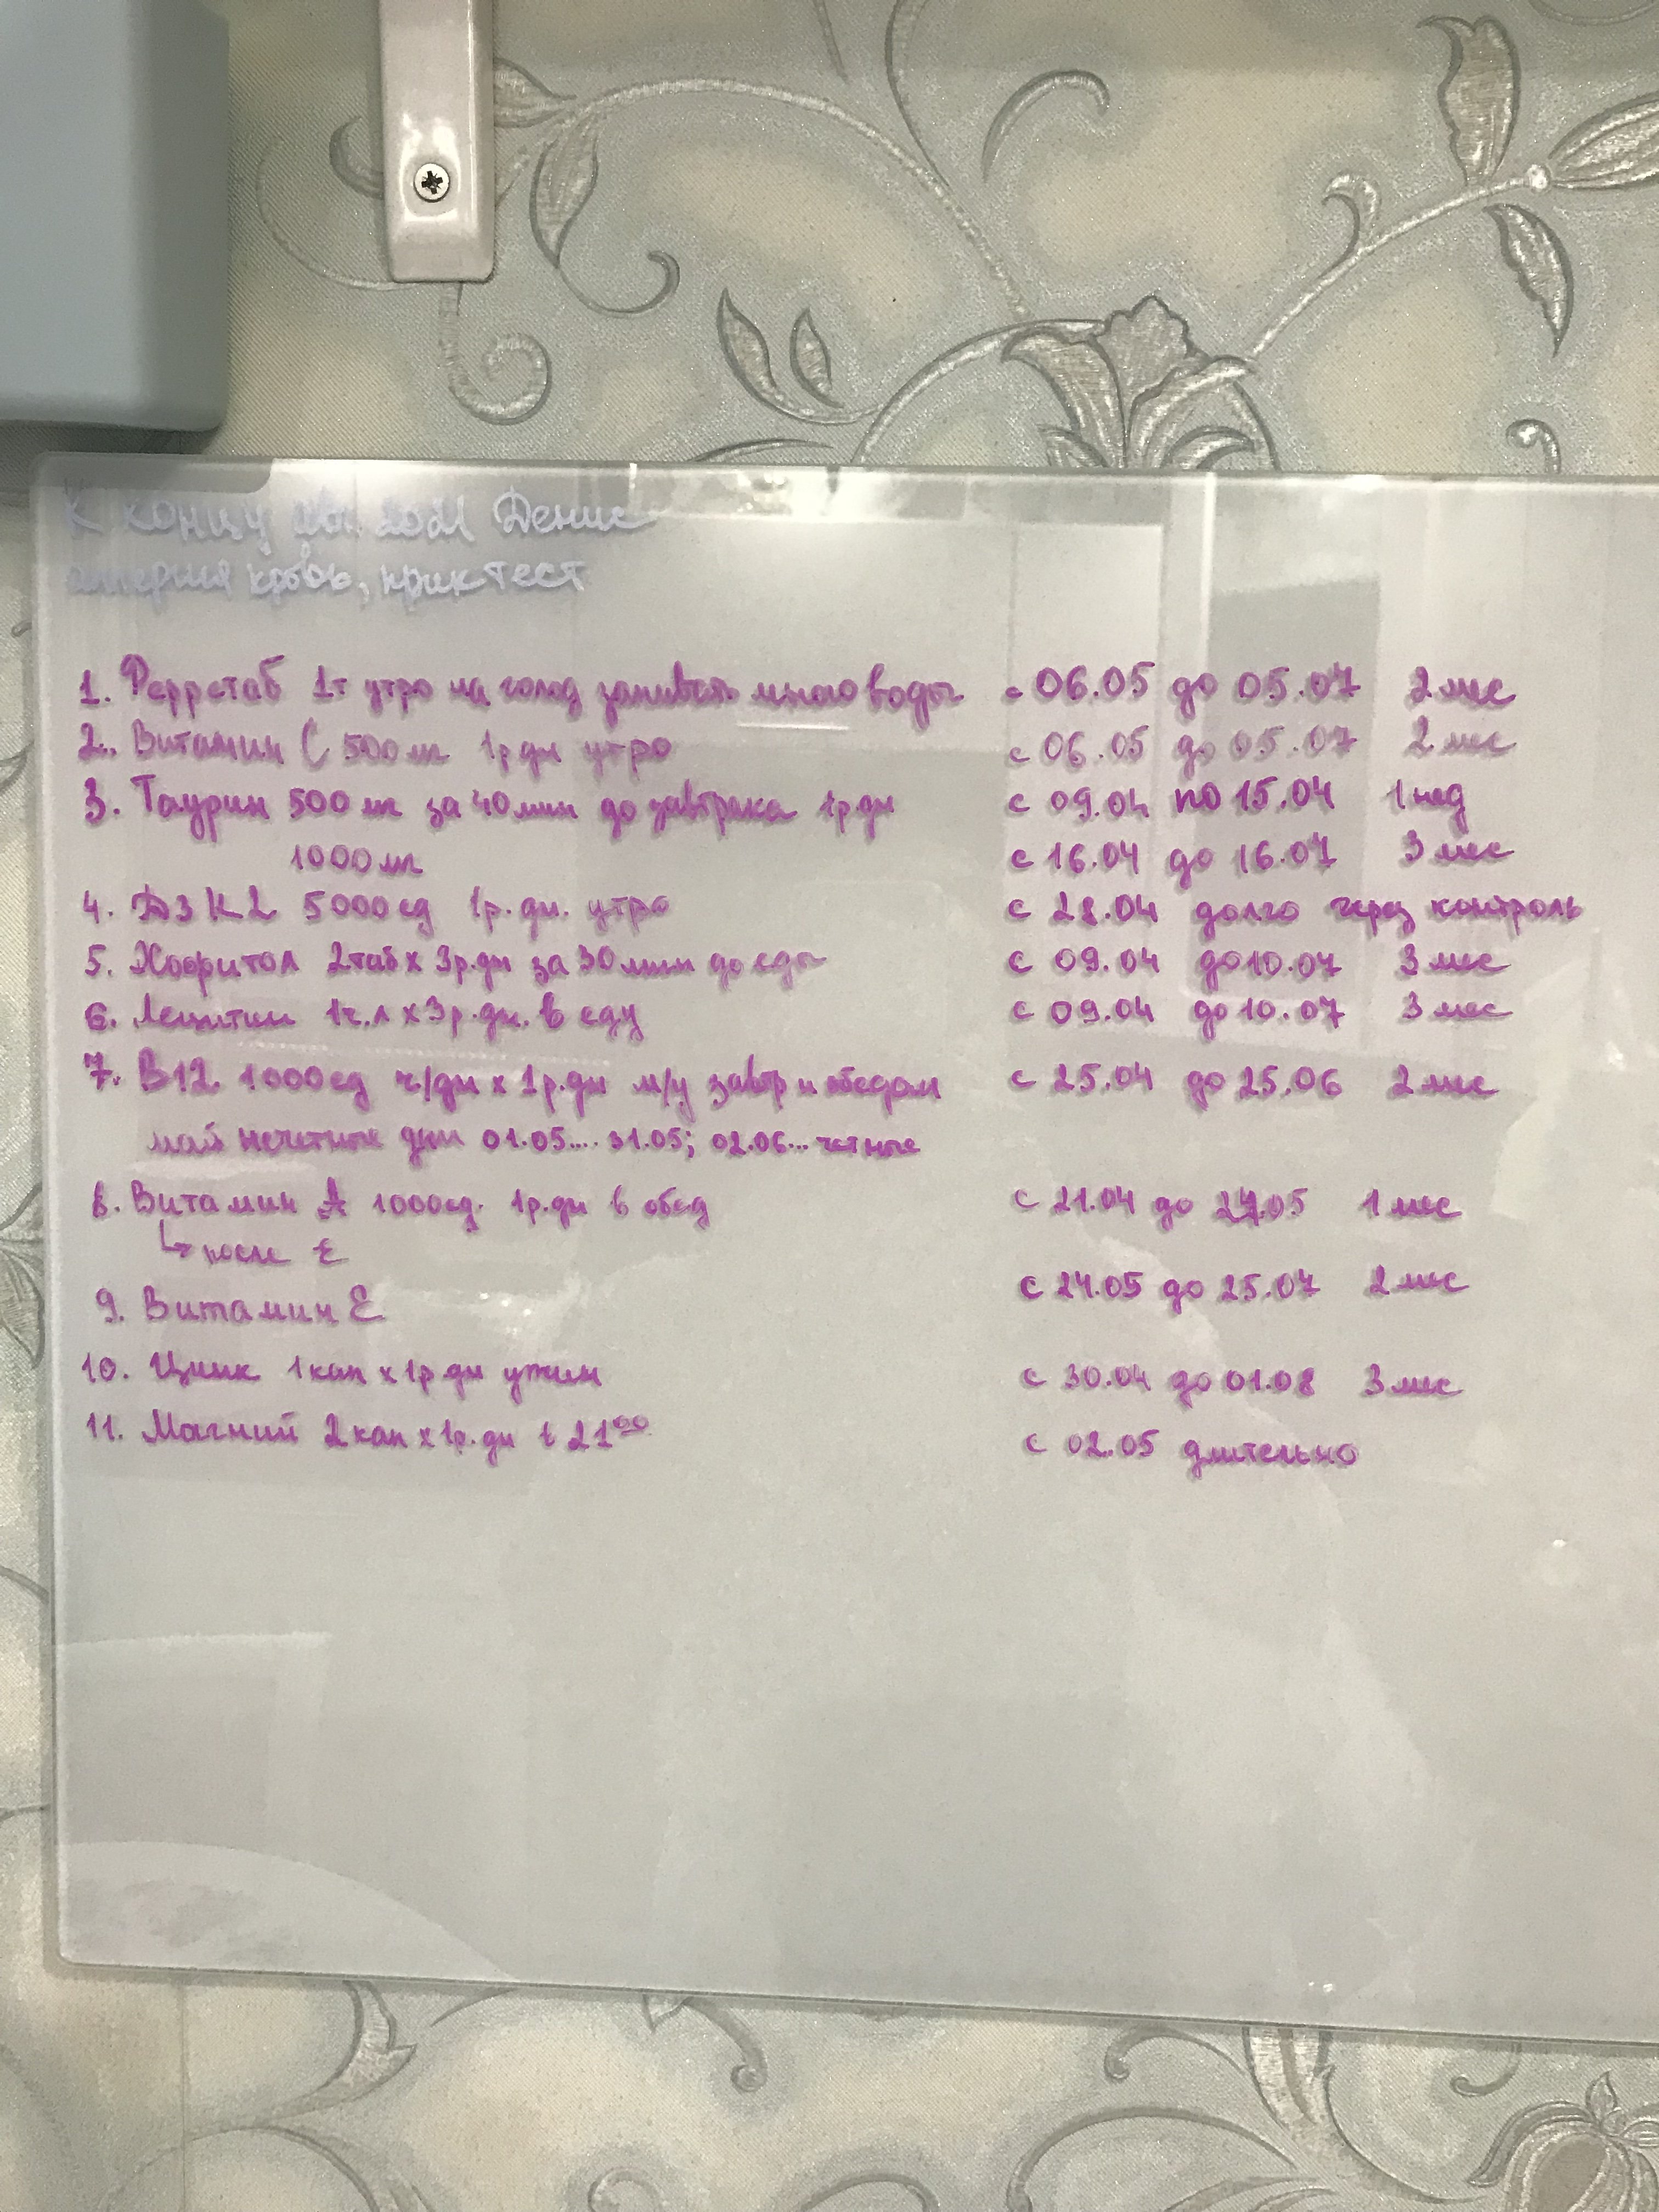 К концу авг. 2021 Денис
аллергия кровь, приктест
1. Ферретаб 1т утро на голод запивать много воды с 06.05 до 05.07 2 мес
2. Витамин С 500 мг 1р.дн утро с 06.05 до 05.07 2 мес
3. Таурин 500 мг за 40 мин до завтрака 1р.дн с 09.04 по 15.04 1 нед
1000 мг с 16.04 до 16.07 3 мес
4. Д3 К2 5000 ед 1р.дн. утро с 28.04 долго через контроль
5. Хофитол 2таб х 3р.дн за 30 мин до еды с 09.04 до 10.07 3 мес
6. Лецитин 1ч.л х 3р.дн. в еду с 09.04 до 10.07 3 мес
7. В12 1000 ед ч/дн х 1р.дн м/у завтр и обедом с 25.04 до 25.06 2 мес
май нечетные дни 01.05.... 31.05; 02.06... четные
8. Витамин А 1000 ед. 1р.дн в обед с 21.04 до 05 1 мес
↳ после Е
9. Витамин Е с 24.05 до 25.07 2 мес
10. Цинк 1 кап х 1р.дн ужин с 30.04 до 01.08 3 мес
11. Магний 2 кап х 1р.дн в 21⁰⁰ с 02.05 длительно